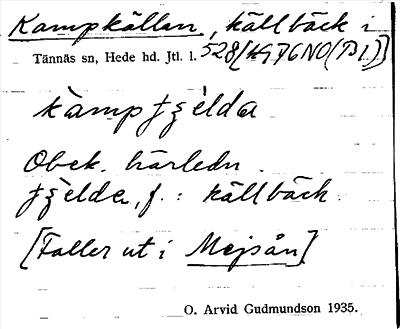 Kampkällan, källbäck i
Tännäs sn, Hede hd. Jtl. l. 528 (K976NO(B1))
kampfjèlda
Obek. härledn.
fjèlda, f.: källbäck.
[Faller ut i Mejsån]
O. Arvid Gudmundson 1935.